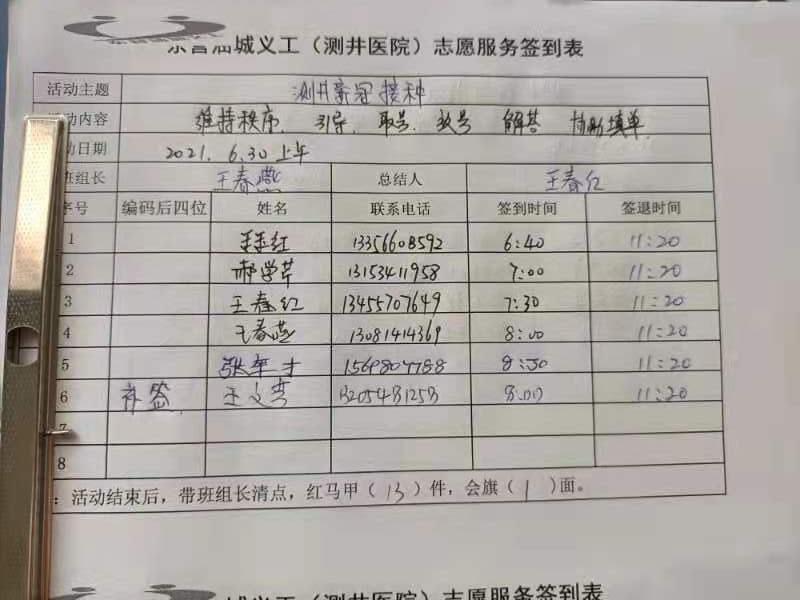 东营油城义工（测井医院）志愿服务签到表
活动主题 测井新冠接种
动内容 维持秩序、引导、取号、放号 解答 协助填单
动日期 2021.6.30上午
班组长 王春燕 总结人 王春红
序号 编码后四位 姓名 联系电话 签到时间 签退时间
1 13356608592 6:40 11:20
2 郝学芹 13153411958 7:00 11:20
3 王春红 13455707649 7:30 11:20
4 王春燕 13081414369 8:00 11:20
5 张军才 8:30 11:20
6 补签 王文芳 8:00 11:20
7
8
：活动结束后，带班组长清点，红马甲（13）件，会旗（1）面。
城义工（测井医院）志愿服务签到表